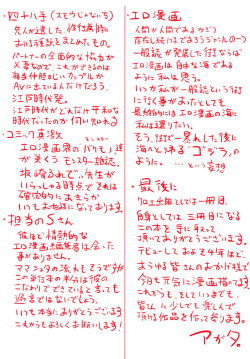 ・四十八手(スモウじゃないち)
先人が遺した、性行為時に
おける技をまとめたもの。
パートナーの全面的な協力が
必要なので、これができるのは
相当仲睦まじいカップルか
AVに出ている人だけだろう。
江戸時代発。
江戸時代がどんだけ平和な
時代だったのか伺い知れる
・コミック真激
エロ漫画界のバケモノ達
モンスター
が巣くうモンスター雑誌。
いらっしゃる時点でそれは
いつもお世話になっております。
・担当のSさん
彼ほど情熱的な
エロ漫画編集者に会った
事がありません。
この単行本の半分は彼の
こだわりでできていると言っても
過言ではないでしょう。
いつも本当にありがとうございます。
これからもよろしくお願いします!
・エロ漫画
人間が人間であるかぎり
存在し続けるであろうジャンルの一つ
一般誌が発展した街ならば
エロ漫画は自由な海である
ように私は思う。
いつか私が一般誌という街
に行く事があったとしても
最終的にはエロ漫画の海に
私は還りたい。
そう、街で一暴れした後に
海へとかえる“ゴジラ”の
ように。 … という妄想
・最後に
自身としては三冊目になる
この本を手に取って
頂いてありがとうございます。
デビューしておよそ4年ほど、
あらゆる皆さんのおかげ様で
今日も元気に漫画描いてます
これからも、そしていつまでも
皆様に少しでも楽しんで
頂ける作品を作って参ります。
アガタ